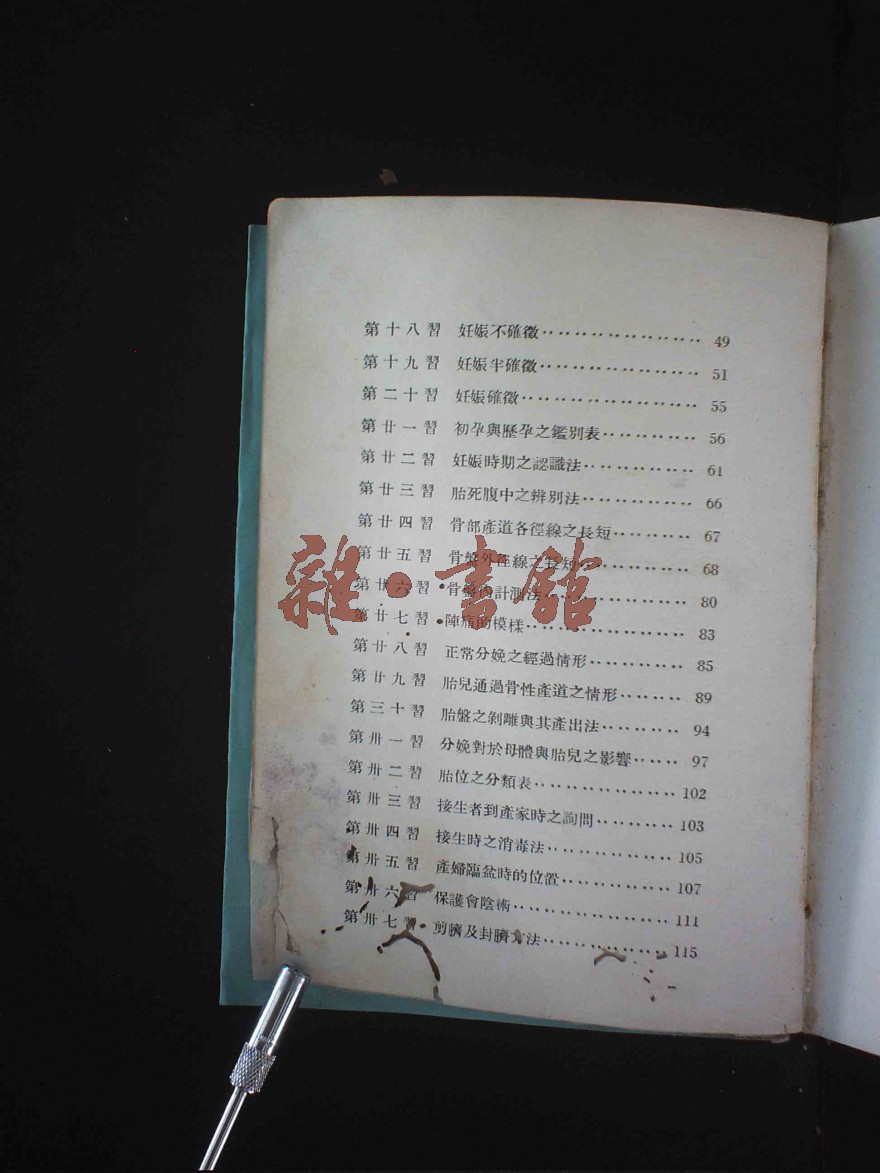 第十八習 妊娠不確徵‥‥‥‥‥‥‥‥‥‥49
第十九習 妊娠半確徵‥‥‥‥‥‥‥‥‥‥51
第二十習 妊娠確徵‥‥‥‥‥‥‥‥‥‥‥55
第廿一習 初孕與歷孕之鑑別表‥‥‥‥‥‥56
第廿二習 妊娠時期之認識法‥‥‥‥‥‥‥61
第廿三習 胎死腹中之辨別法‥‥‥‥‥‥‥66
第廿四習 骨部產道各徑線之長短‥‥‥‥‥67
第廿五習 骨盤外徑線之長短‥‥‥‥‥‥‥68
第廿六習 骨盤內計測法‥‥‥‥‥‥‥‥‥80
第廿七習 陣痛的模樣‥‥‥‥‥‥‥‥‥‥83
第廿八習 正常分娩之經過情形‥‥‥‥‥‥85
第廿九習 胎兒通過骨性產道之情形‥‥‥‥89
第三十習 胎盤之剝離與其產出法‥‥‥‥‥94
第卅一習 分娩對於母體與胎兒之影響‥‥‥97
第卅二習 胎位之分類表‥‥‥‥‥‥‥‥‥102
第卅三習 接生者到產家時之詢問‥‥‥‥‥103
第卅四習 接生時之消毒法‥‥‥‥‥‥‥‥105
第卅五習 產婦臨盆時的位置‥‥‥‥‥‥‥107
第卅六習 保護會陰術‥‥‥‥‥‥‥‥‥‥111
第卅七習 剪臍及封臍方法‥‥‥‥‥‥‥‥115
雜·書館